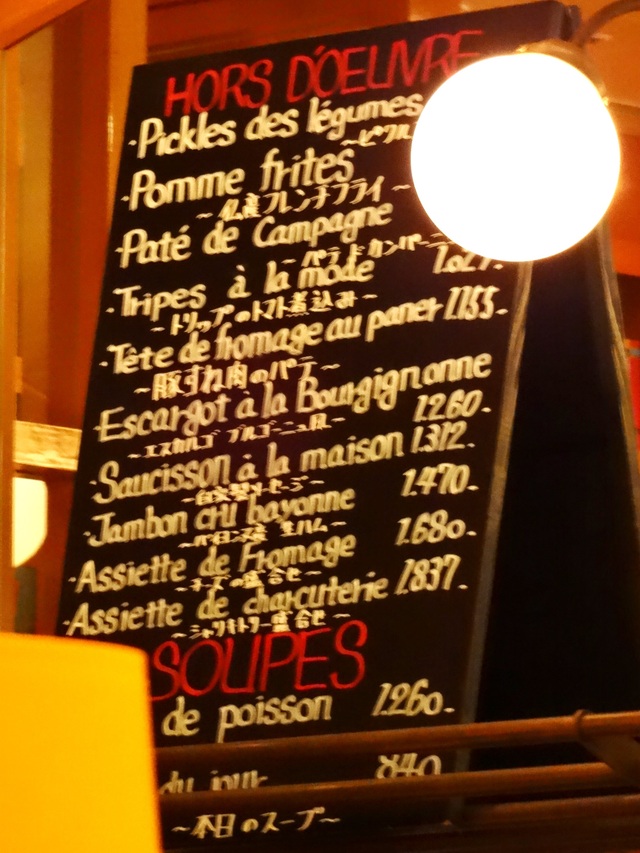 HORS D'OEUVRE
·Pickles des légumes
~ピクル
·Pomme frites
フレンチフライ~
·Paté de Campagne
·Tripes à la mode
~トリップのトマト煮込み~
·Tête de fromage au paner 1.155.-
~豚すね肉のパテ~
Escargot à la Bourgignonne
~エスカルゴ ブルゴーニュ風~ 1.260.-
·Saucisson à la maison 1.312.-
~自家製ソーセージ~
·Jambon cru bayonne 1.470.-
~バイヨンヌ産 生ハム~
·Assiette de Fromage 1.680.-
~チーズの盛合せ~
·Assiette de charcuterie 1.837.-
~シャルキトリー盛合せ~
SOUPES
de poisson 1.260.-
du jour 840
~本日のスープ~